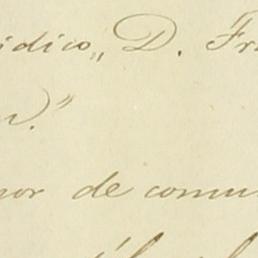 idico,, D. Fr
n."
nor de comu